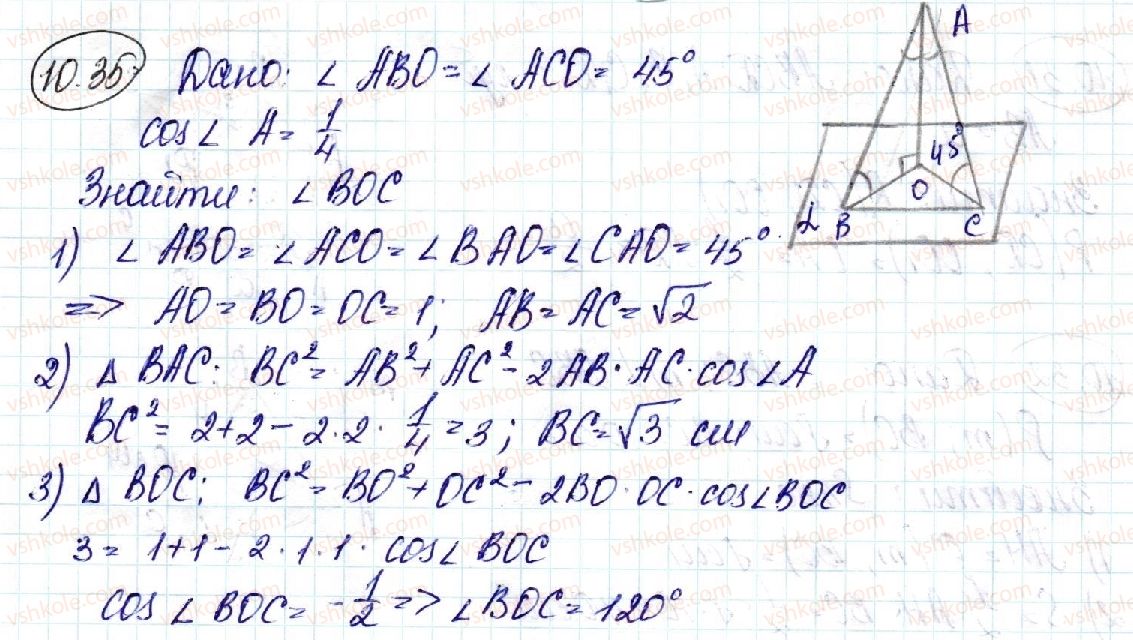 10.35 Дано: ∠ ABO = ∠ ACO = 45°
cos∠ A = 1/4
Знайти: ∠ BOC
A
45°
O
α B C
1) ∠ ABO = ∠ ACO = ∠ BAO = ∠ CAO = 45°.
=> AO = BO = OC = 1; AB = AC = √2
2) △ BAC: BC² = AB² + AC² - 2AB · AC · cos∠A
BC² = 2+2 - 2·2 · 1/4 = 3; BC = √3 см
3) △ BOC; BC² = BO² + OC² - 2BO · OC · cos∠BOC
3 = 1+1 - 2·1·1· cos∠ BOC
cos ∠ BOC = -1/2 => ∠ BOC = 120°
vshkole.com